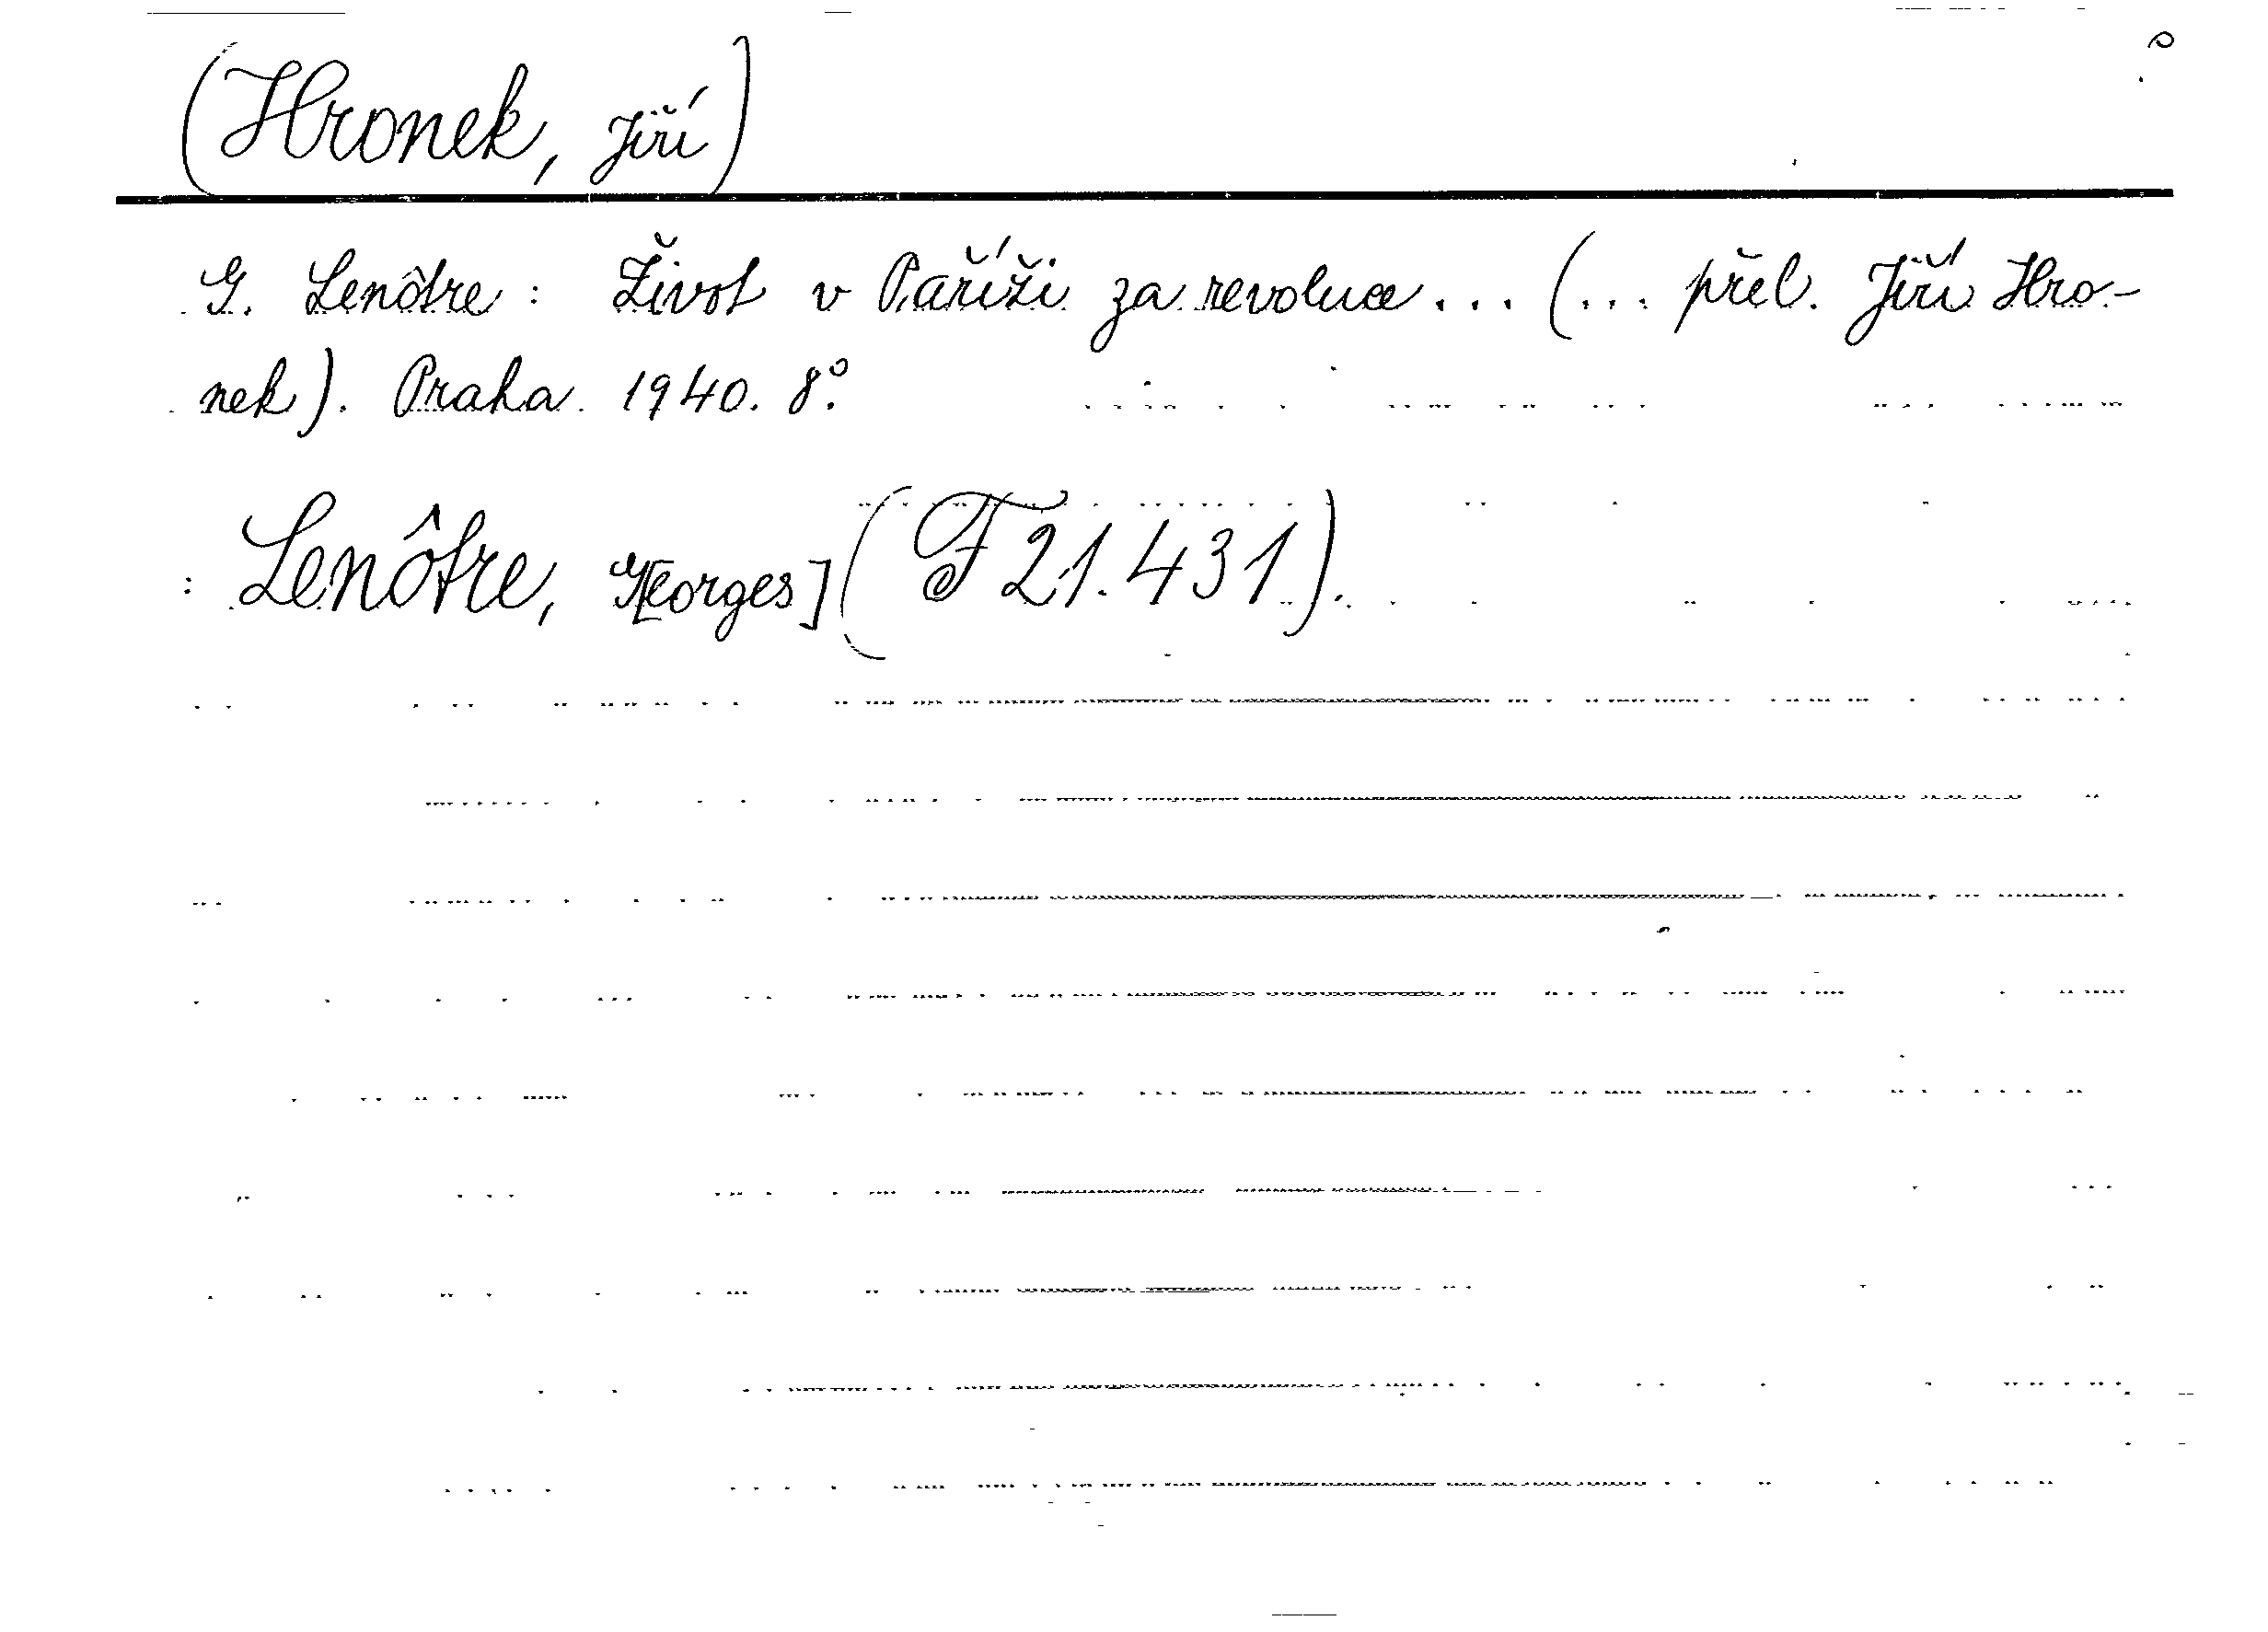 (Hronek, Jiří)
G. Lenôtre : Život v Paříži za revoluce ... (... přel. Jiří Hro-
nek). Praha 1940. 8°.
: Lenôtre, G[eorges] (F 21.431).